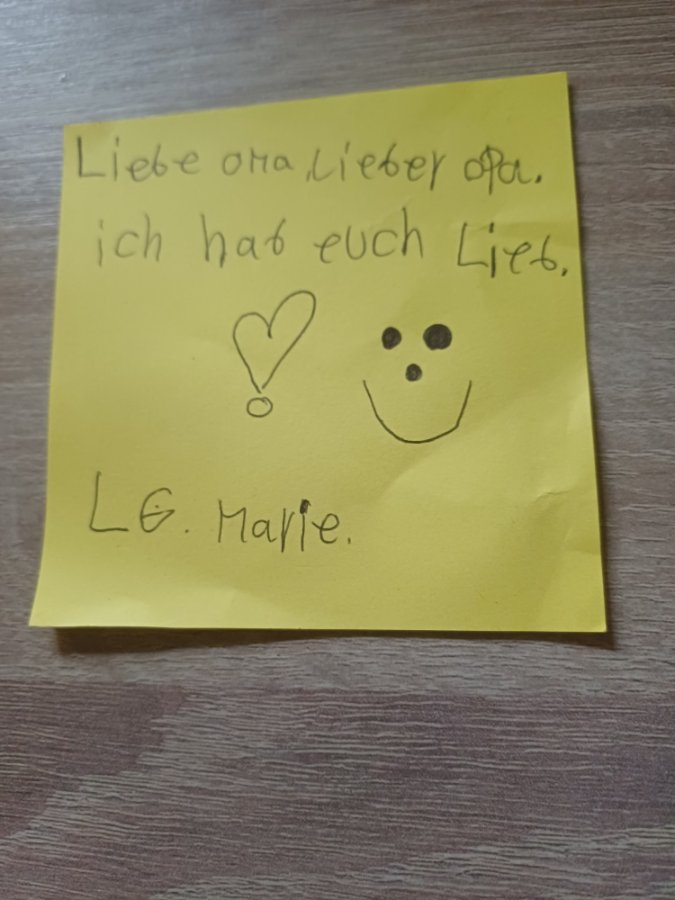 Liebe oma, Lieber opa.
ich hab euch Lieb.
LG. Marie.